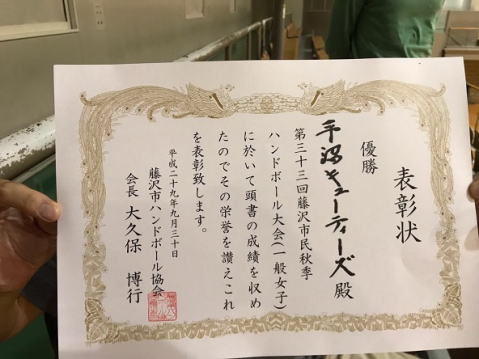 表彰状
優勝
手沼キューティーズ殿
第三十三回藤沢市民秋季
ハンドボール大会(一般女子)
に於いて頭書の成績を収め
たのでその栄誉を讃えこれ
を表彰致します。
平成二十九年九月三十日
藤沢市ハンドボール協会
会長 大久保 博行